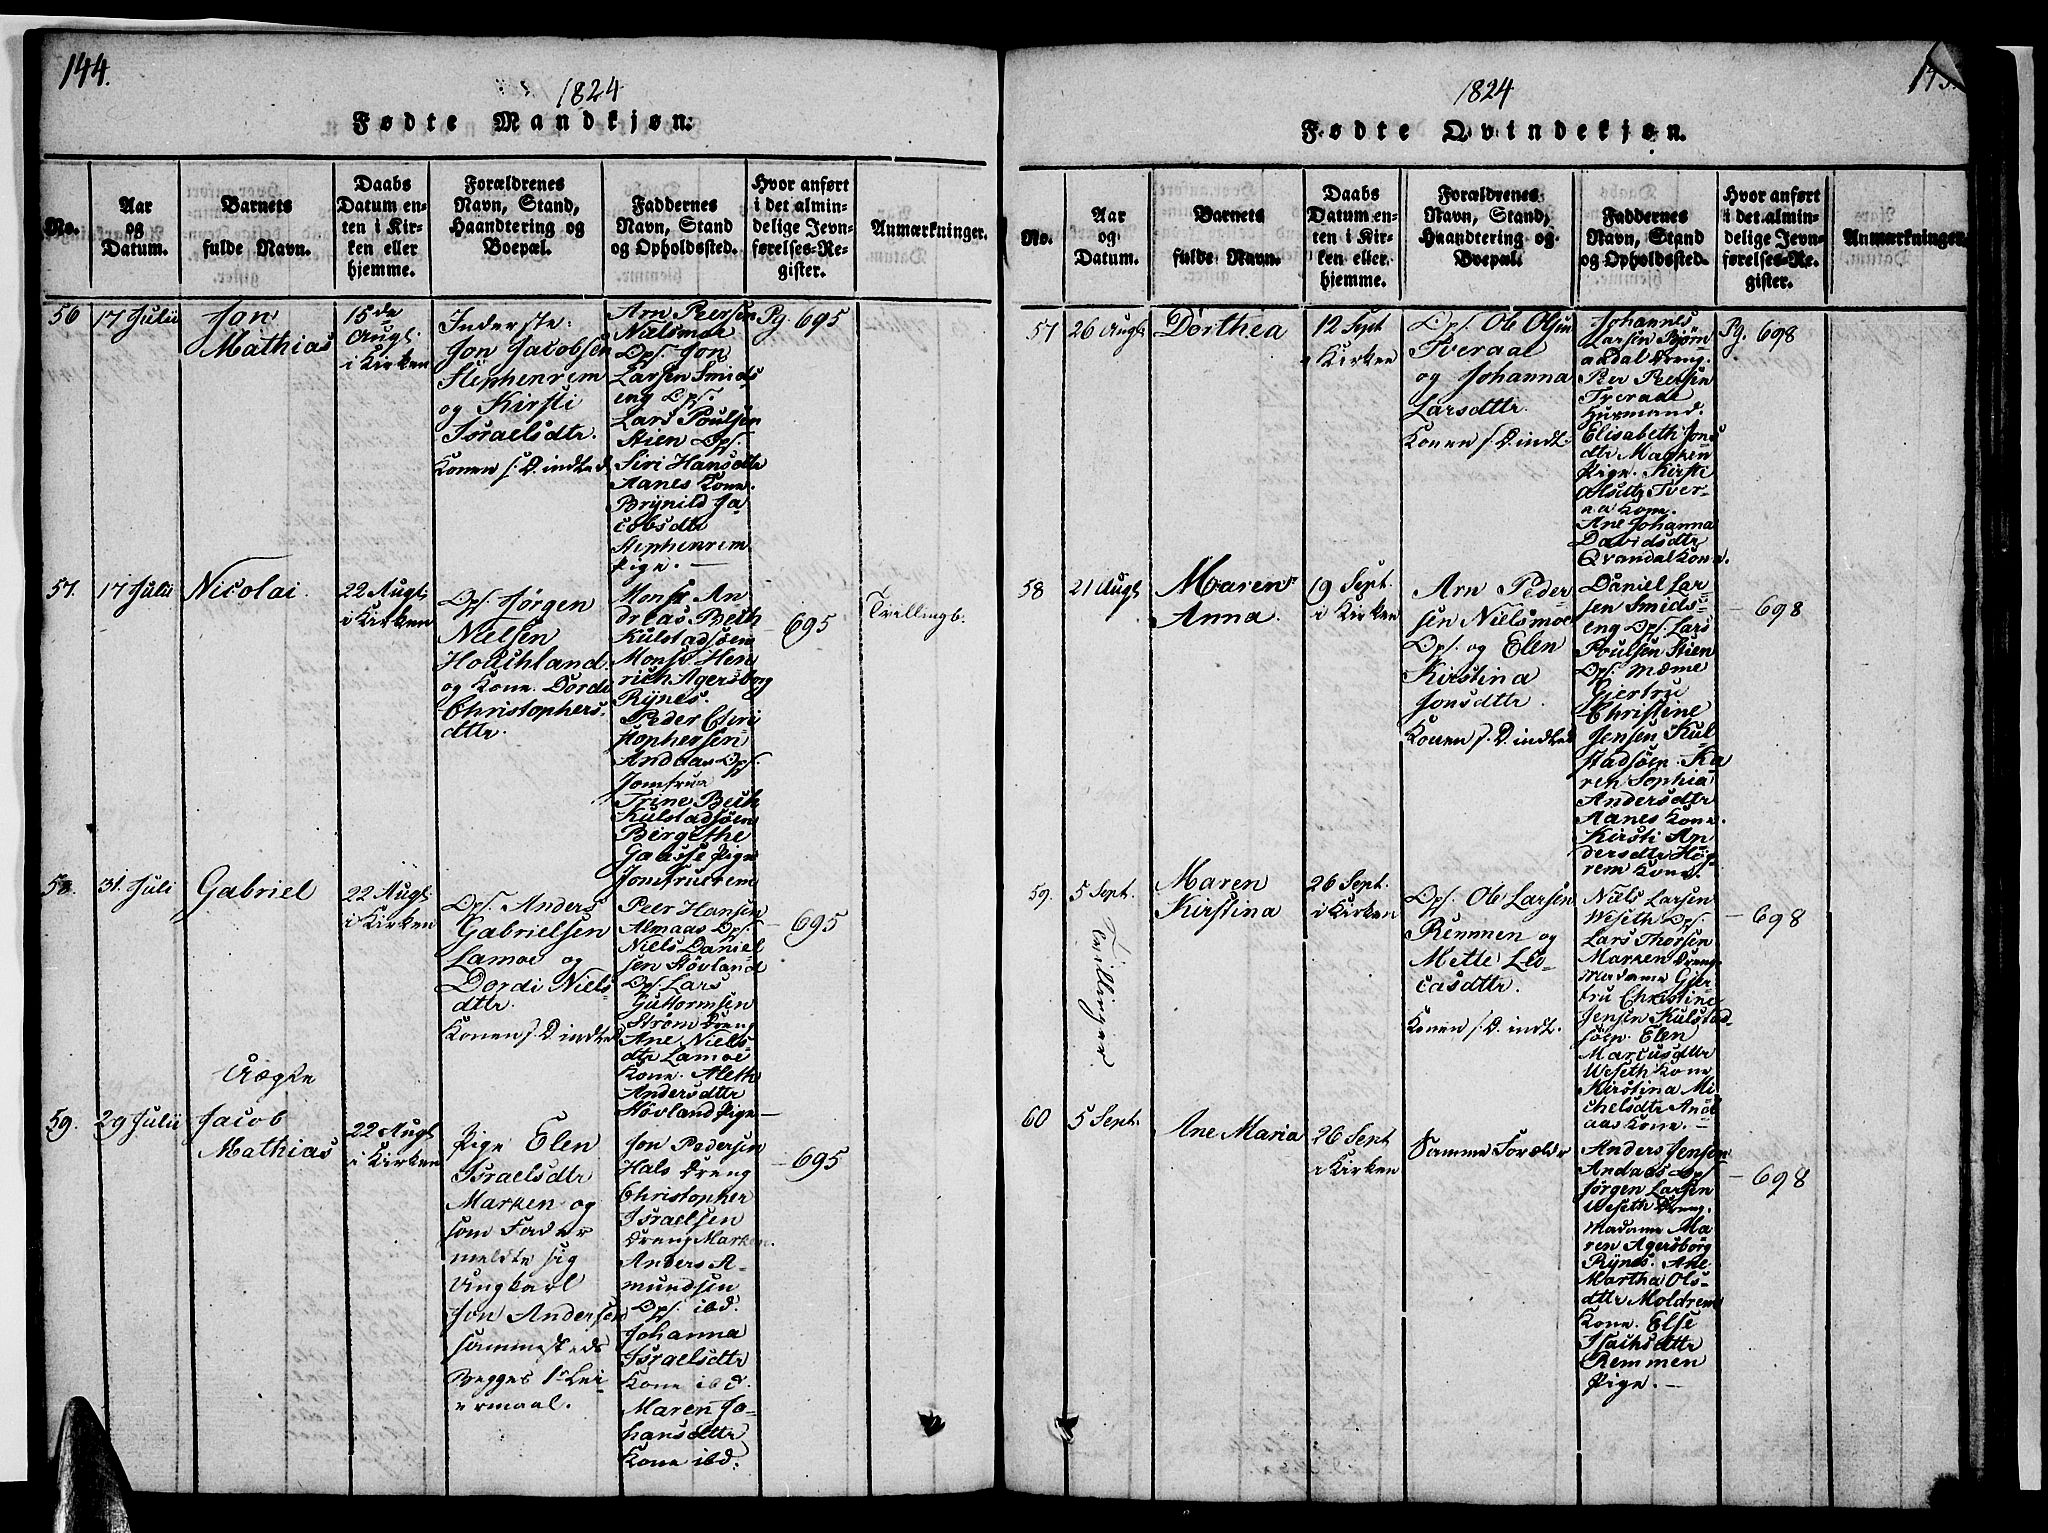 144.
1824
Fødte Mandkjøn.
No.
Aar
og
Datum.
Barnets
fulde Navn.
Daabs
Datum en-
ten i Kir-
ken eller
hjemme.
Forældrenes
Navn, Stand,
Haandtering og
Boepæl.
Faddernes
Navn, Stand
og Opholdssted.
Hvor anført
i det almin-
delige Jevn-
førelses-Re-
gister.
Anmærkninger.
56
17 Julii
Jon
Mathias
15de
Augt.
i Kirken
Inderste
Jon Jacobsen
Stephenrem
og Kirsti
Israelsdtr.
Konen s. D. indted
Arn Peersen
Nielsmoe
Ops. Jon
Larsen Smids
eng Ops.
Lars Poulsen
Stien Ops.
Siri Hansdtr
Aanes Kone.
Brynild Ja
cobsdtr
Stephenrem
Pige. —
Pg. 695
57.
17 Julii
Nicolai.
22 Augt.
i Kirken
Ops. Jørgen
Nielsen
Houshland.
og Kone. Dordi
Christophers-
dttr.
Monsr An
dreas Bech
Kulstadsøen
Monsr Hen
rich Agersborg
Rynes.
Peder Chri
stophersen
Andaas Ops.
Jomfrue
Trine Bech
Kulstadsøen
Bergethe
Gaasse Pige
Jomfruerem
695
Tvillingb.
58.
31. Juli
Gabriel
22 Augt.
i Kirken
Ops. Anders
Gabrielsen
Lamoe og
Dordi Niels-
dttr.
Konen s. D. indted
Peer Hansen
Almaas Ops.
Niels Daniel
sen Høvland
Ops. Lars
Guttormsen
Strøm Dreng
Ane Niels-
dtr Lamoe
Kone. Aleth
Andersdttr
Høvland Pige —
— 695
Uægte
59.
29 Julii
Jacob
Mathias
22 Augt
i Kirken
Pige Elen
Israelsdtr
Marken og
som Fader
meldte sig
Ungkarl
Jon Andersen
sammesteds
Begges 1ste Lei-
ermaal.
Jon Pedersen
Hals Dreng
Christopher
Israelsen
Dreng Marken.
Anders A-
mundsen
Ops. ibd.
Johanna
Israelsdtr
Kone ibd.
Maren Jo-
hansdttr
Kone ibd.
— 695
1824
Fødte Qvindekjøn.
No.
Aar
og
Datum.
Barnets
fulde Navn.
Daabs
Datum en-
ten i Kir-
ken eller
hjemme.
Forældrenes
Navn, Stand,
Haandtering og
Boepæl.
Faddernes
Navn, Stand
og Opholdssted.
Hvor anført
i det almin-
delige Jevn-
førelses-Re-
gister.
Anmærkninger.
57
26 Augt.
Dorthea
12 Sept
i Kirken
Ops. Ole Olsen
Tveraae
og Johanna
Larsdttr.
Konen s. D. indt.
Johannes
Larsen Bjørn
aadal Dreng.
Peer Peersen
Tveraae
Huusmand.
Elisabeth Jons
dtr Marken
Pige. Kirsti
Olsdtr Tver-
aa Kone.
Ane Johanna
Davidsdtr
Qvandal Kone.
Pg. 698
58
21 Augt
Maren
Anna.
19 Sept.
i Kirken
Arn Peder-
sen Nielsmoe
Ops. og Elen
Kirstina
Jonsdttr.
Konen s. D. indted
Daniel Lar-
sen Smids-
eng Ops. Lars
Poulsen Stien
Ops. Mdme
Giertru
Christine
Jensen Kul
stadsøen. Ka
ren Sophia
Andersdtr
Aanes Kone.
Kirsti An-
dersdtr Høg-
rem Kone.
— 698
59.
5 Sept.
Tvillinger
Maren
Kirstina
26 Sept.
i Kirken
Ops. Ole Larsen
Remmen og
Mette Lu-
casdttr.
Konen s. D. indt.
Niels Larsen
Weseth Ops.
Lars Thorsen
Marken Dreng
Madame Gjer-
tru Christine
Jensen Kulstad-
søen. Elen
Marcusdttr
Weseth Kone
Kirstina Mi
chelsdtr Andaas
Kone. —
— 698
60
5 Sept.
Ane Maria
26 Sept
i Kirken
Samme Forælder
Anders Jensen
Andaas Ops.
Jørgen Larsen
Weseth Dreng.
Madame Ma
ren Agersborg
Rynes. Ane
Martha Ols-
dttr Moldrem
Kone. Else
Isachsdttr
Remmen
Pige. —
— 698